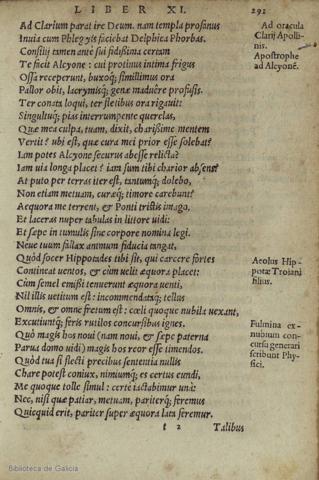 LIBER XI. 291
Ad Clarium parat ire Deum. nam templa profanus
Inuia cum Phlegyis faciebat Delphica Phorbas.
Consilij tamen antè sui fidissima certam
Te facit Alcyone: cui protinus intima frigus
Ossa receperunt, buxoq; simillimus ora
Pallor obit, lacrymisq; genæ maduêre profusis.
Ter conata loqui, ter fletibus ora rigauit:
Singultuq; pias interrumpente querelas,
Quæ mea culpa, tuam, dixit, charissime mentem
Vertit? vbi est, quæ cura mei prior esse solebat?
Iam potes Alcyone securus abesse relicta?
Iam uia longa placet? iam sum tibi charior absens?
At puto per terras iter est, tantumq; dolebo,
Non etiam metuam, curæq; timore carebunt?
Aequora me terrent, & Ponti tristis imago.
Et laceras nuper tabulas in littore uidi:
Et sæpe in tumulis sine corpore nomina legi.
Neue tuum fallax animum fiducia tangat,
Quòd socer Hippotades tibi sit, qui carcere fortes
Contineat uentos, & cùm uelit æquora placet:
Cùm semel emissi tenuerunt æquora uenti,
Nil illis uetitum est: incommendataq; tellus
Omnis, & omne fretum est: cœli quoque nubila uexant,
Excutiuntq; feris rutilos concursibus ignes.
Quò magis hos noui (nam noui, & sæpe paterna
Parua domo uidi) magis hos reor esse timendos.
Quòd tua si flecti precibus sententia nullis
Chare potest coniux, nimiumq; es certus eundi,
Me quoque tolle simul: certè iactabimur unà:
Nec, nisi quæ patiar, metuam, pariterq; feremus
Quicquid erit, pariter super æquora lata feremur.
t 2 Talibus
Ad oracula
Clarij Apolli-
nis.
Apostrophe
ad Alcyonē.
Aeolus Hip-
potæ Troiani
filius.
Fulmina ex
nubium con-
cursu generari
scribunt Phy-
sici.
Biblioteca de Galicia